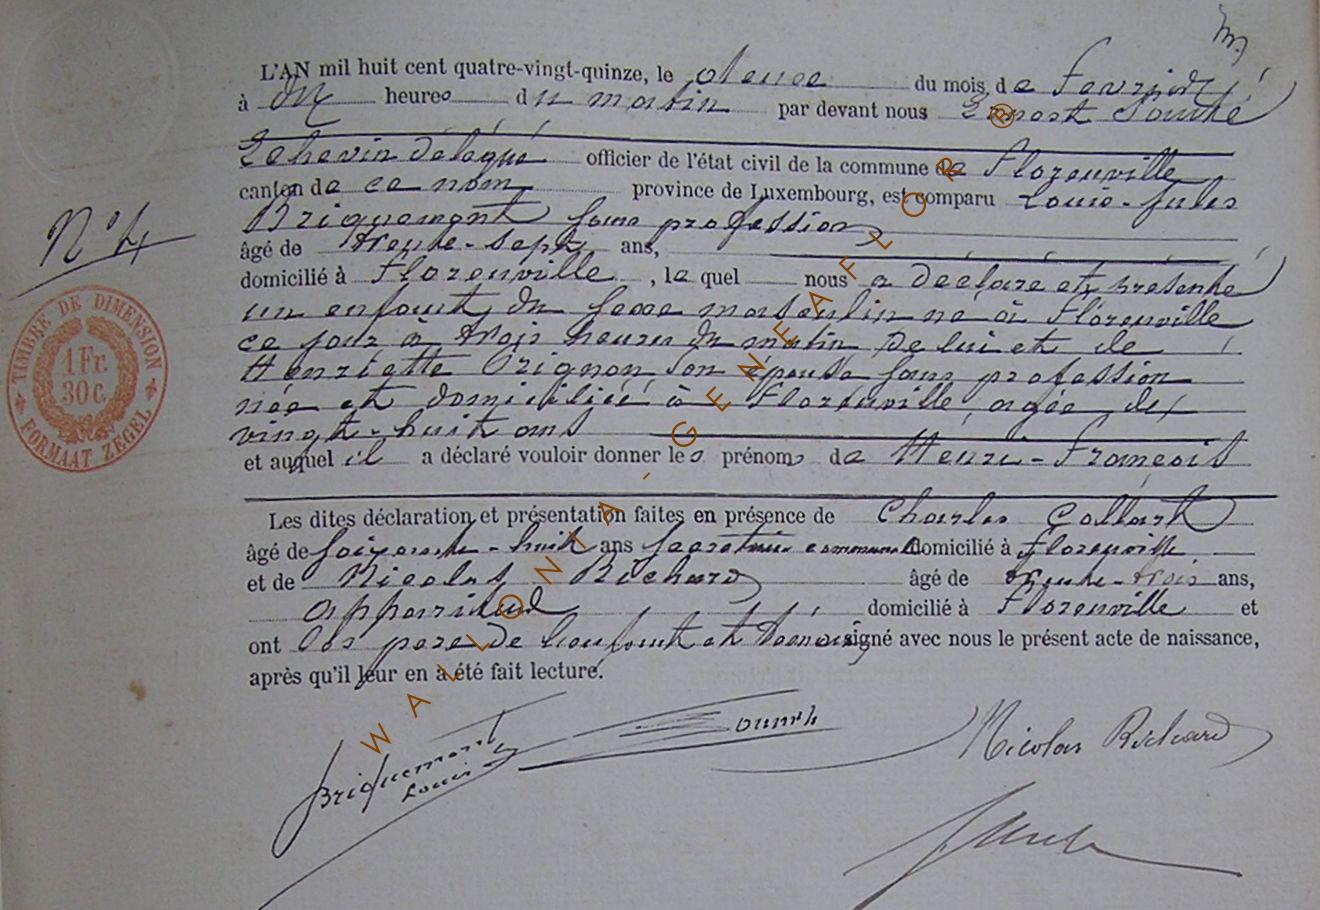 L'AN mil huit cent quatre-vingt-quinze, le onze du mois de Fevrier
à dix heures du matin par devant nous Ernest
Echevin délégué officier de l'état civil de la commune de Florenville
canton de ce nom province de Luxembourg, est comparu Louis-Jules
Briquemont sans profession
âgé de trente-sept ans,
domicilié à Florenville, lequel nous a déclaré et présenté
un enfant du sexe masculin né à Florenville
ce jour à trois heures du matin de lui et de
Henriette Orignon son épouse sans profession
née et domiciliée à Florenville agée de
vingt-huit ans
et auquel il a déclaré vouloir donner les prénoms de Henri-François
Les dites déclaration et présentation faites en présence de Charles Collart
âgé de soixante-huit ans secrétaire communal domicilié à Florenville
et de Nicolas Richard âgé de trente-trois ans,
appariteur domicilié à Florenville et
ont les père de l'enfant et témoins signé avec nous le présent acte de naissance,
après qu'il leur en a été fait lecture.
N° 4
TIMBRE DE DIMENSION
1 Fr.
30 C.
FORMAAT ZEGEL
Briquemont
Louis
Nicolas Richard
WALLONIA-GENEAFLOR ®